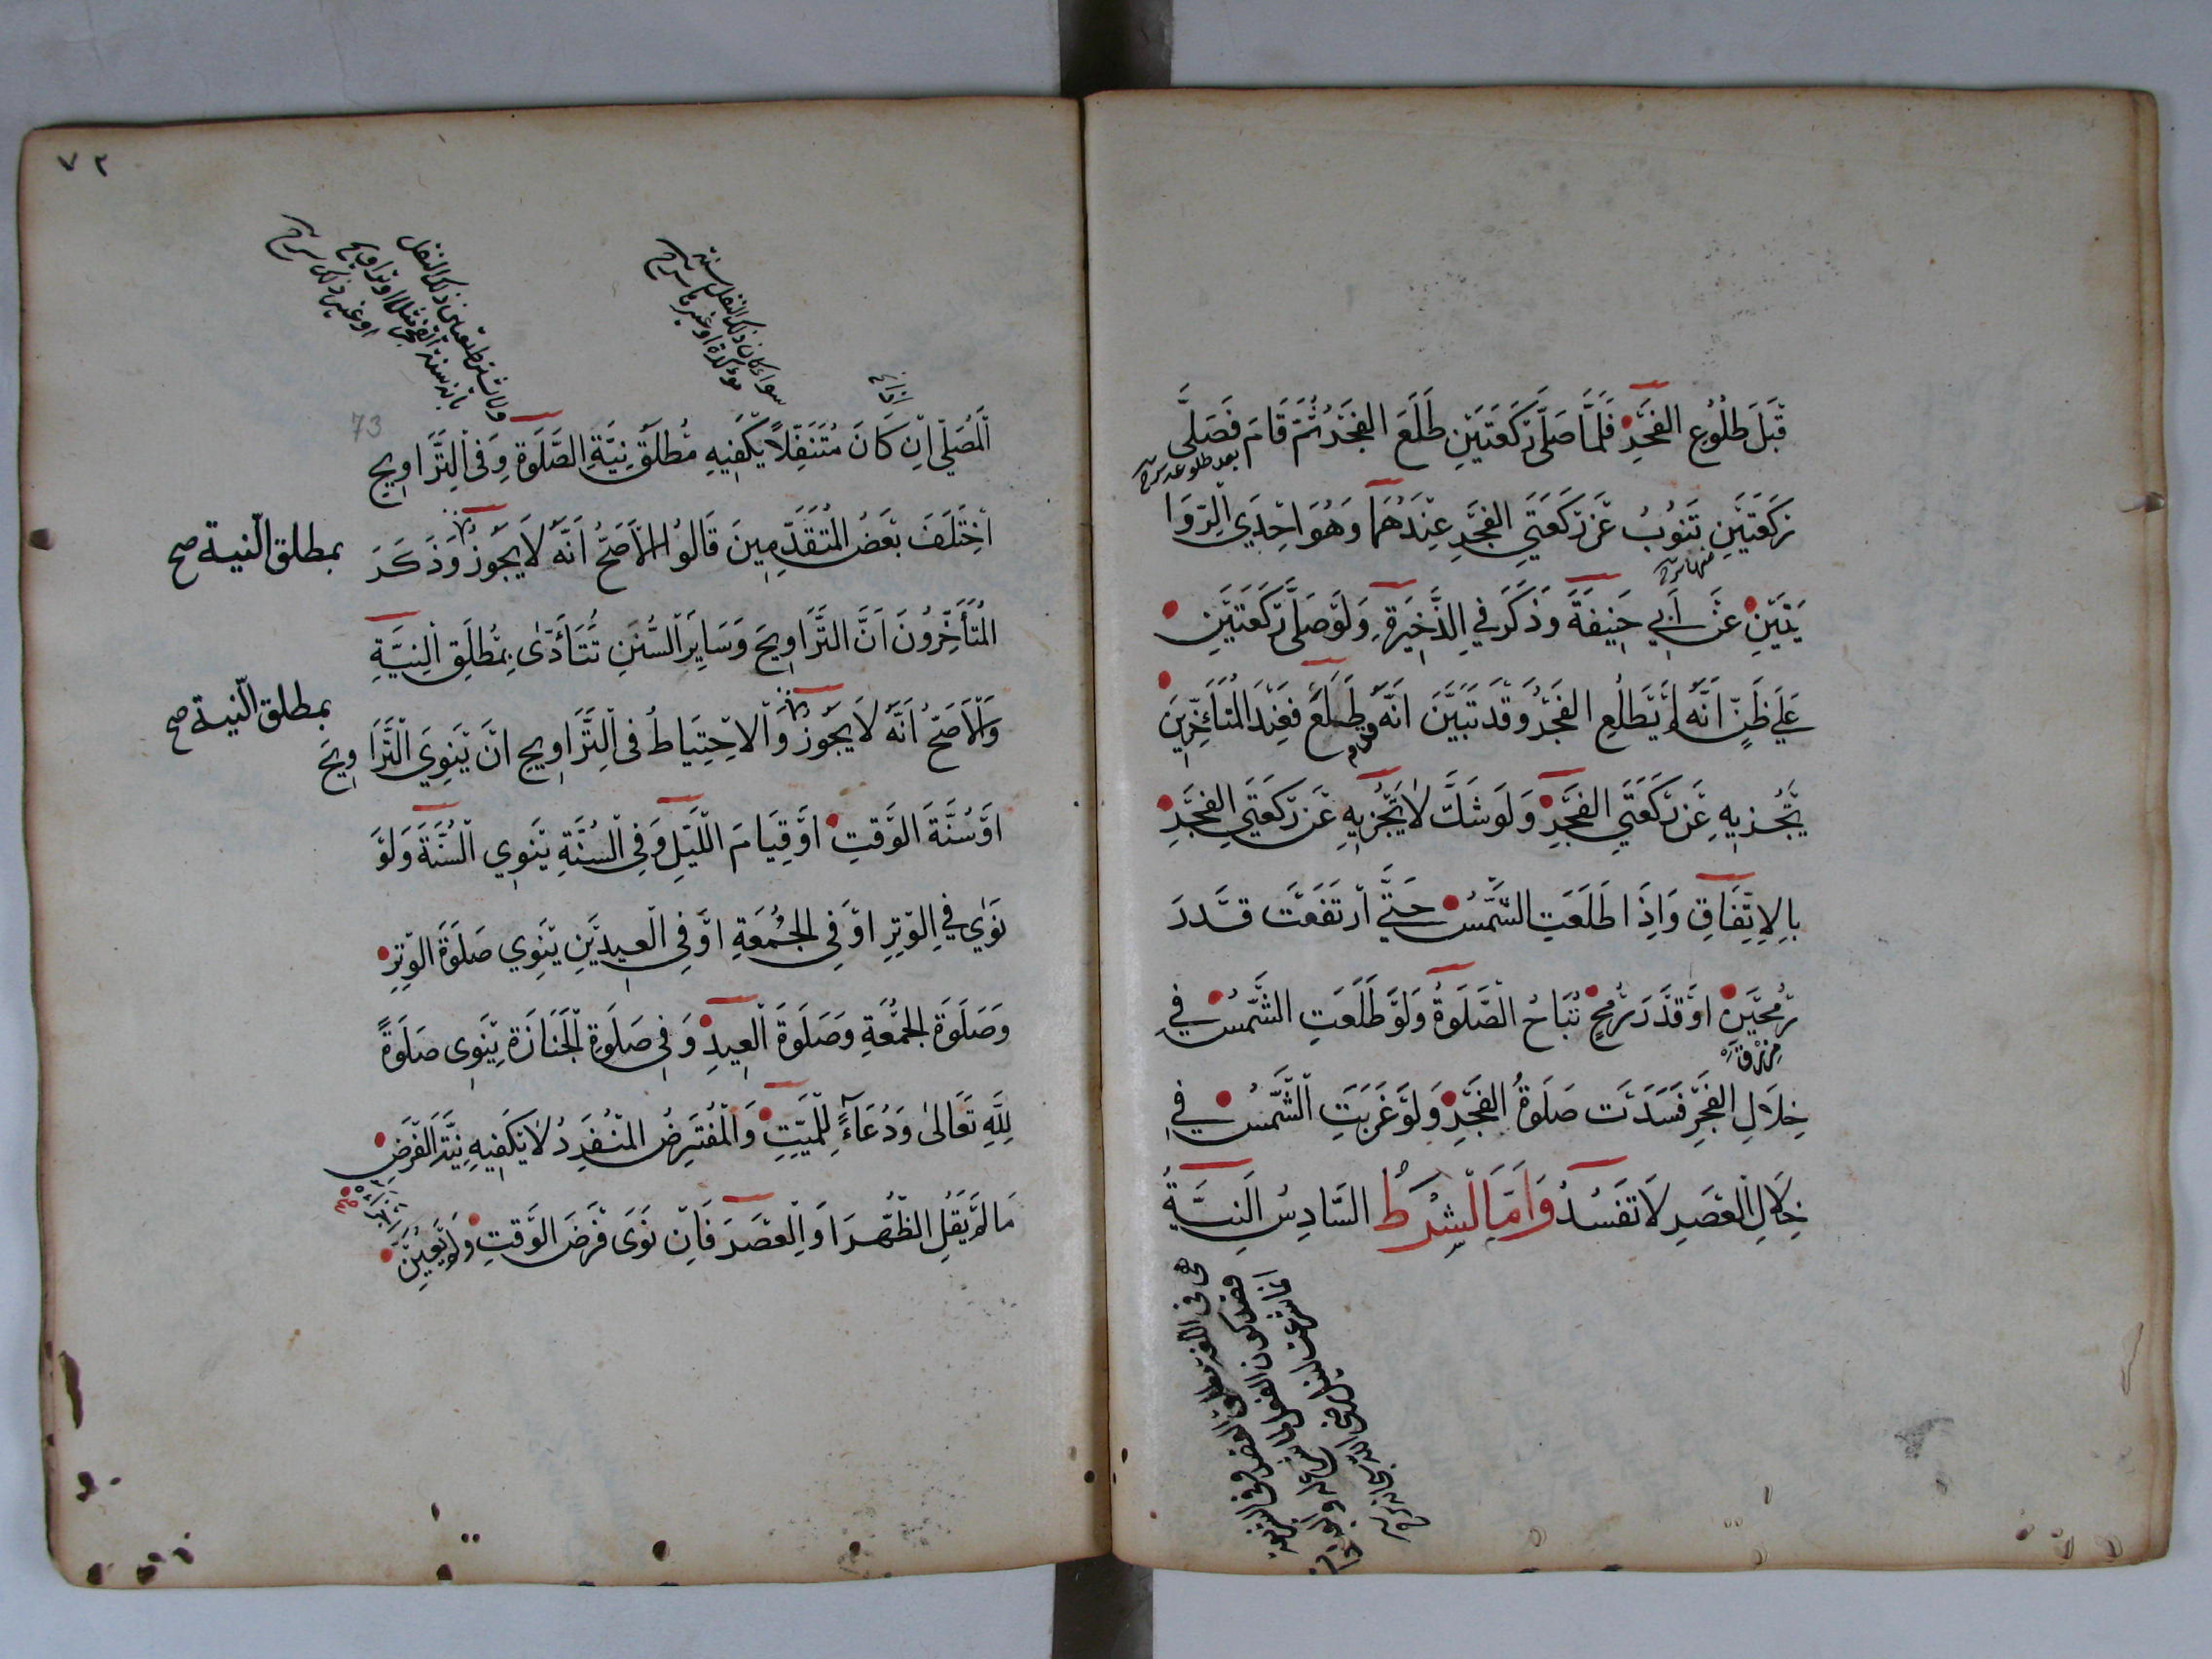 قَبْلَ طُلُوعِ الفَجْرِ فَلَمَّا صَلَّى رَكْعَتَيْنِ طَلَعَ الفَجْرُ ثُمَّ قَامَ فَصَلَّى
بعد طلوعه شرح
رَكْعَتَيْنِ تَنُوبُ عَنْ رَكْعَتَيِ الفَجْرِ عِنْدَهُمَا وَهُوَ اِحْدَي الرِّوَا
منها شرح
يَتَيْنِ عَنْ اَبِي حَنِيفَةَ وَذَكَرَ فِي الذَّخِيرَةِ وَلَوْ صَلَّى رَكْعَتَيْنِ
عَلَى ظَنٍّ اَنَّهُ لَمْ يَطْلُعِ الفَجْرُ وَقَدْ تَبَيَّنَ اَنَّهُ طَلَعَ فَعِنْدَ المُتَأَخِّرِينَ
يُجْزِيهِ عَنْ رَكْعَتَيِ الفَجْرِ وَلَوْ شَكَّ لَا يُجْزِيهِ عَنْ رَكْعَتَيِ الفَجْرِ
بِالِاتِّفَاقِ وَاِذَا طَلَعَتِ الشَّمْسُ حَتَّى ارْتَفَعَتْ قَدْرَ
رُمْحَيْنِ اَوْ قَدْرَ رُمْحٍ تُبَاحُ الصَّلَوةُ وَلَوْ طَلَعَتِ الشَّمْسُ فِي
خِلَالِ الفَجْرِ فَسَدَتْ صَلَوةُ الفَجْرِ وَلَوْ غَرَبَتِ الشَّمْسُ فِي
خِلَالِ العَصْرِ لَا تَفْسُدُ وَاَمَّا الشَّرْطُ السَّادِسُ النِيَّةُ
٧٢
73
سواء كان ذلك النفل سنة
مؤكدة او غيرها شرح
ولا يشترط تعيين ذلك النفل
بانه سنة الفجر مثلا او تراويح
او غير ذلك شرح
اَلْمُصَلِّي اِنْ كَانَ مُتَنَفِّلًا يَكْفِيهِ مُطْلَقُ نِيَّةِ الصَّلَوةِ وَفِي التَّرَاوِيحِ
اِخْتَلَفَ بَعْضُ المُتَقَدِّمِينَ قَالُوا الْاَصَحُّ اَنَّهُ لَا يَجُوزُ وَذَكَرَ
بمطلق النية صح
المُتَأَخِّرُونَ اَنَّ التَّرَاوِيحَ وَسَايِرَ السُّنَنِ تُتَأَدَّى بِمُطْلَقِ النِيَّةِ
وَالْاَصَحُّ اَنَّهُ لَا يَجُوزُ وَالْاِحْتِيَاطُ فِي التَّرَاوِيحِ اَنْ يَنْوِيَ التَّرَاوِيحَ
بمطلق النية صح
اَوْ سُنَّةَ الوَقْتِ اَوْ قِيَامَ اللَّيْلِ وَفِي السُّنَّةِ يَنْوِي السُّنَّةَ وَلَوْ
نَوَي فِي الوِتْرِ اَوْ فِي الجُمُعَةِ اَوْ فِي العِيدَيْنِ يَنْوِي صَلَوةَ الوِتْرِ
وَصَلَوةَ الجُمْعَةِ وَصَلَوةَ العِيدِ وَفِي صَلَوةِ الجَنَازَةِ يَنْوِى صَلَوةً
لِلّٰهِ تَعَالَى وَدُعَاءً لِلْمَيِّتِ وَالْمُفْتَرِضُ المُنْفَرِدُ لَا يَكْفِيهِ نِيَّةُ الفَرْضِ
مَا لَمْ يَقُلِ الظُّهْرَ اَوِ العَصْرَ فَاِنْ نَوَى فَرْضَ الوَقْتِ وَلَمْ يُعَيِّنْ
اجزأه صح